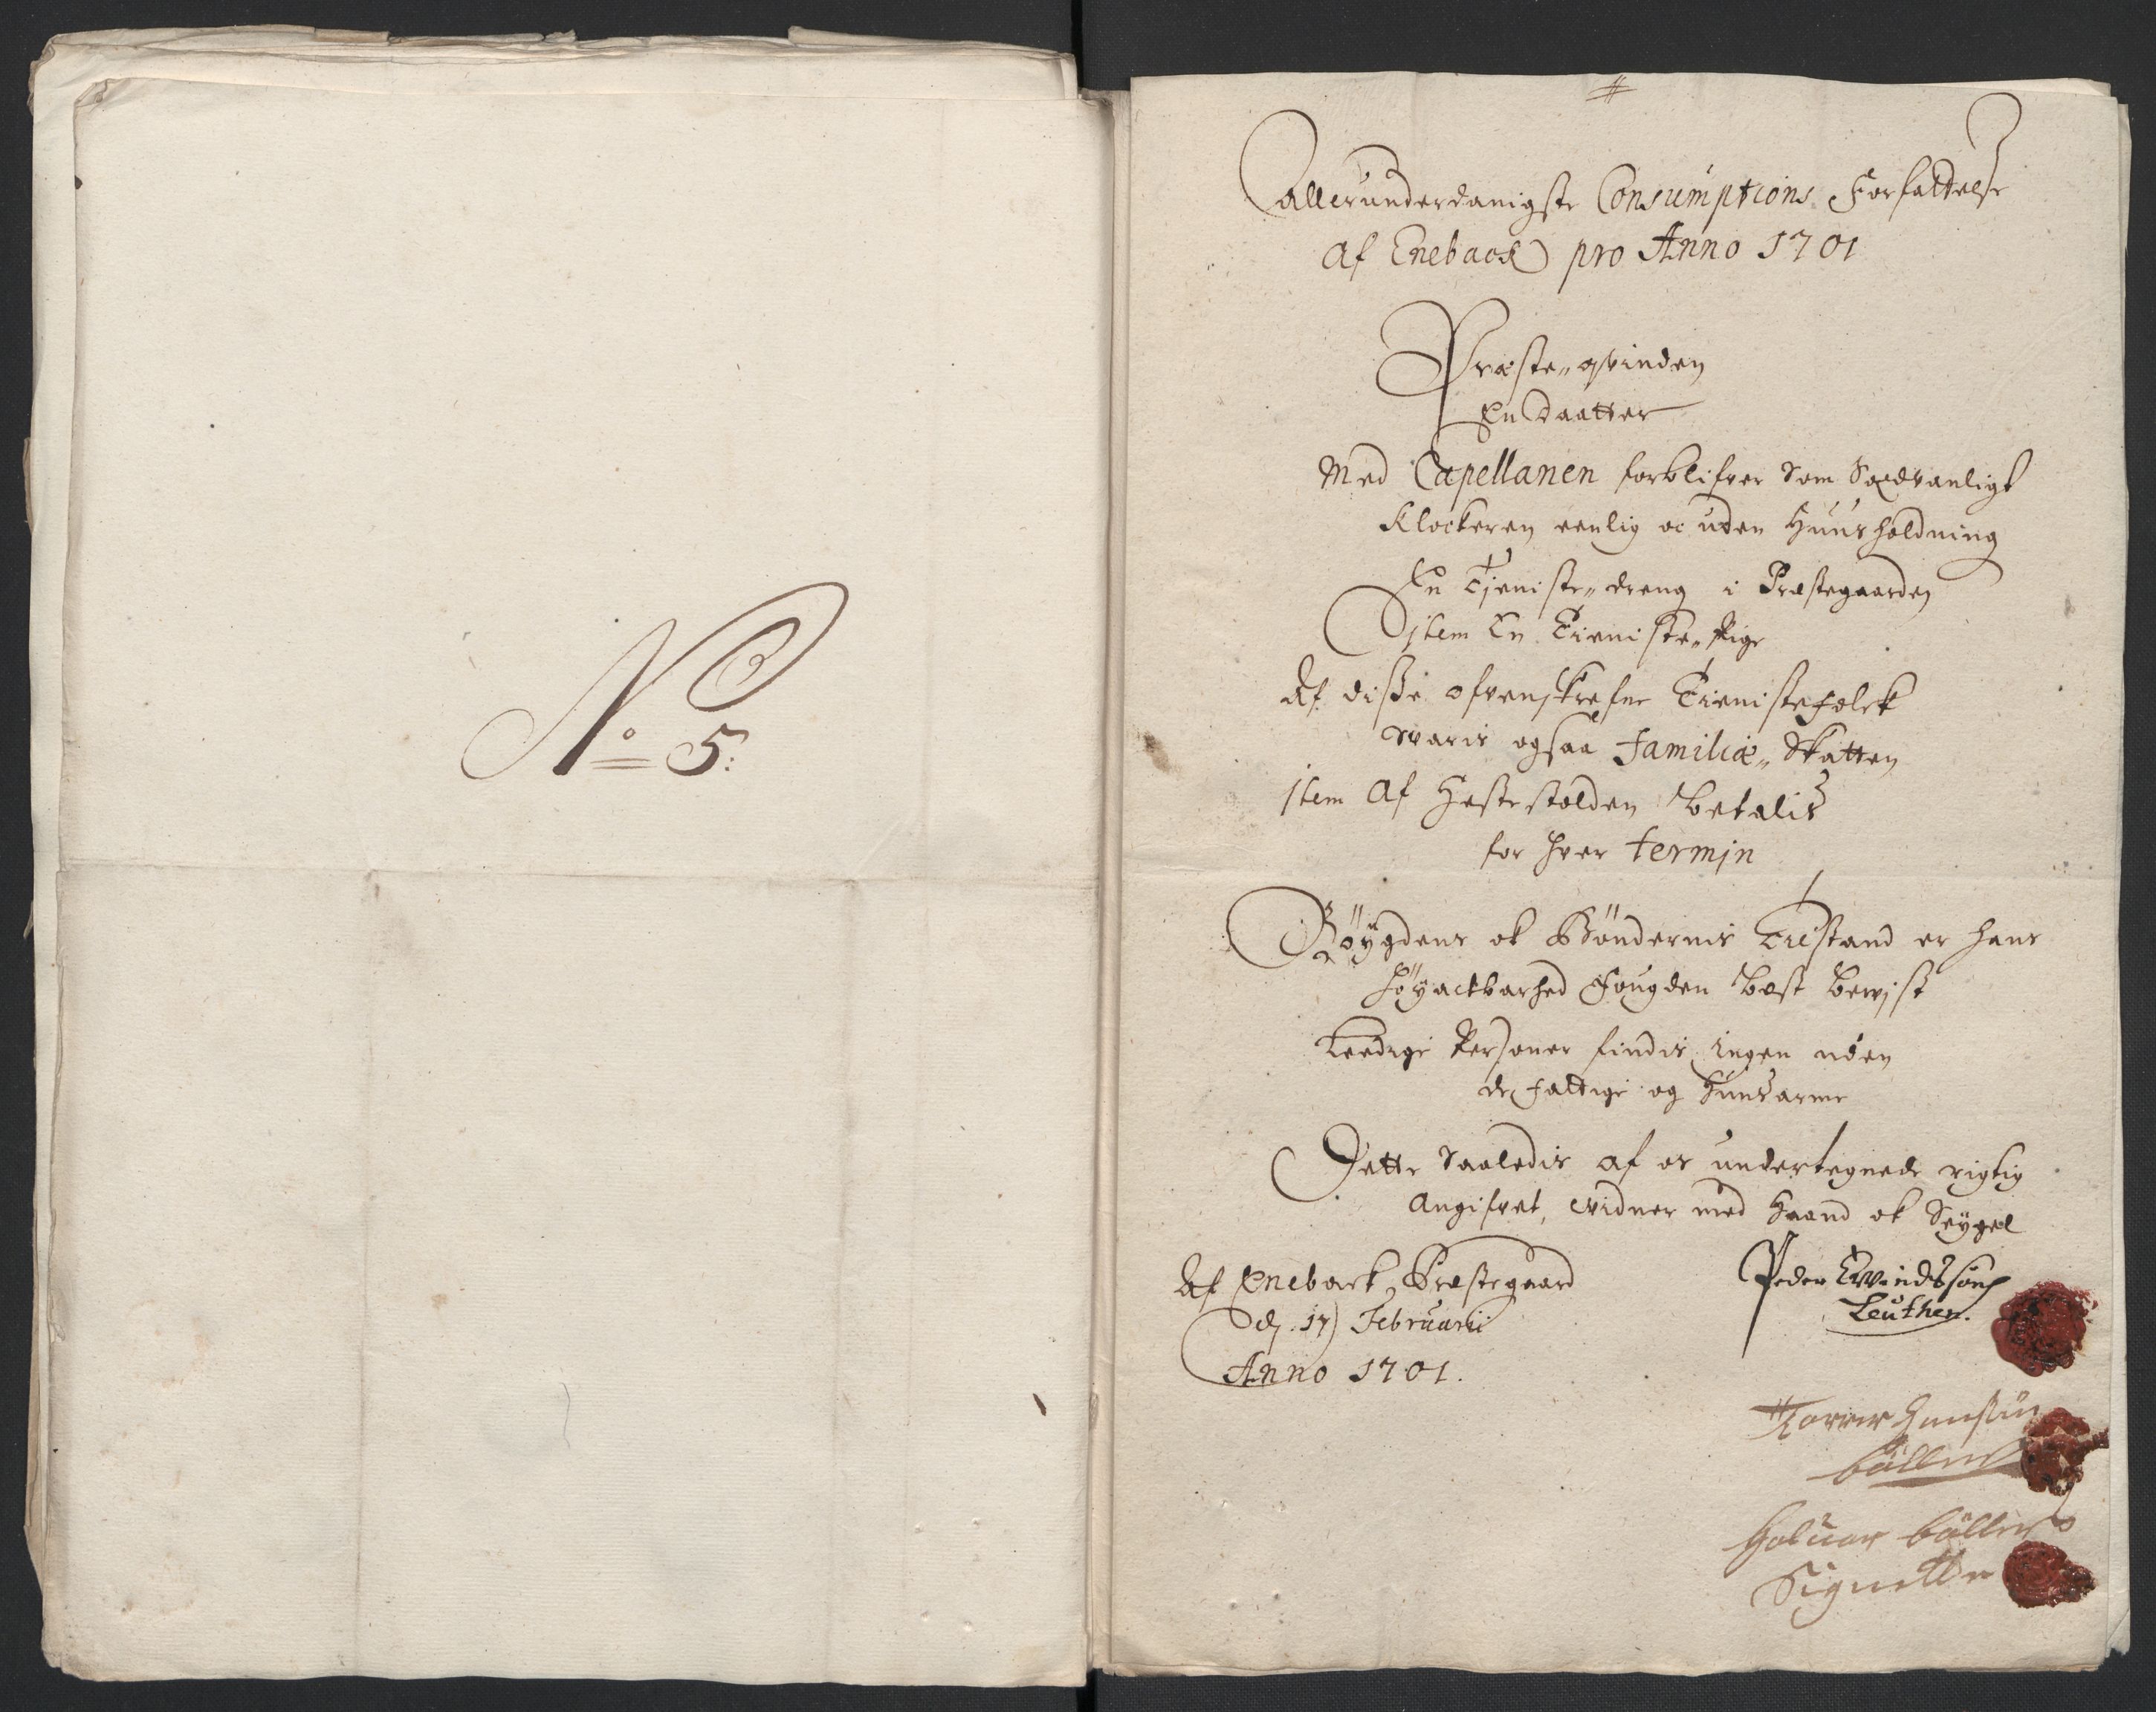 No 5:
Allerunderdanigste Consumptions Forfattelse
af Eneback pro Anno 1701
Præste„qvinden
En Daatter
Med Capellanen forblifver som Sædvanligt
Klockeren eenlig oc uden Huusholdning
En Tjeniste„dreng i Præstegaarden
jtem En Tieniste„Pige
Af disse ofvenskrefne Tienistefolck
svaris ogsaa Familiæ„Skatten
jtem af Hestestolden Betalis
for hver termjn
Böygdens ok Böndernis Tilstand er hans
höyactbarhed Fougden Best Bevist
Leedige Personer findis ingen uden
de fattige og Huusarme
Dette Saaledis af os undertegnede rigtig
angifvet, vidner med Haand ok Seygel
Af Eneback Præstegaard
d. 17 Februarii
Anno 1701.
Peder Evindssön
Leuther.
Hansön
böller
Haluor böller
Signetter